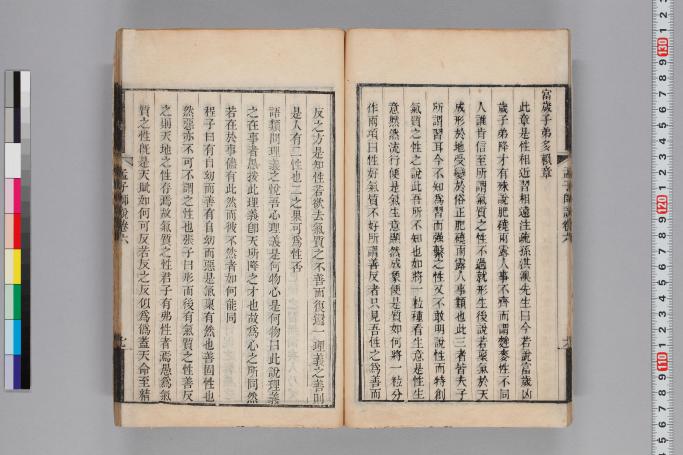 富歲子弟多賴章
此章是性相近習相遠注疏孫淇澳先生曰今若說富歲凶
歲子弟降才有殊說肥磽雨露人事不齊而謂麰麥性不同
人誰肯信至所謂氣質之性不過就形生後說若稟氣於天
成形於地受變於俗正肥磽雨露人事類也此三者皆夫子
所謂習耳今不知為習而強繫之性又不敢明說性而特創
氣質之性之說此吾所不知也如將一粒種看生意是性生
意默然流行便是氣生意顯然成象便是質如何將一粒分
作兩項曰性好氣質不好所謂善反者只見吾性之為善而
反之方是知性若欲去氣質之不善而復還一理義之善則
是人有二性也二之果可為性否
語類問理義之悅吾心理義是何物心是何物曰此說理義
之在事者愚按此理義卽天所降之才也故為心之所同然
若在於事儘有此然而彼不然者如何能同
程子曰有自幼而善有自幼而惡是氣稟有然也善固性也
然惡亦不可不謂之性也張子曰形而後有氣質之性善反
之則天地之性存焉故氣質之性君子有弗性者焉愚爲氣
質之性旣是天賦如何可反若反之反似為僞蓋天命至精
孟子師說卷六
孟子師說卷六